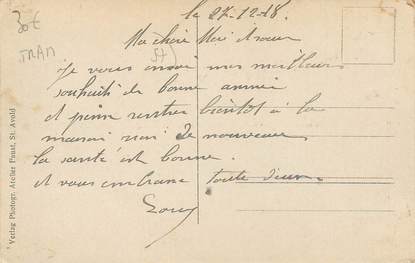 30€
TRAM
le 27-12-18.
Ma chère
Je vous envoi mes meilleurs
souhaits de bonne année
et pense rentrer bientôt à la
maison rien de nouveau
la santé est bonne
et vous embrasse toute deux.
Louis
Verlag Photogr. Atelier Pinat, St. Avold